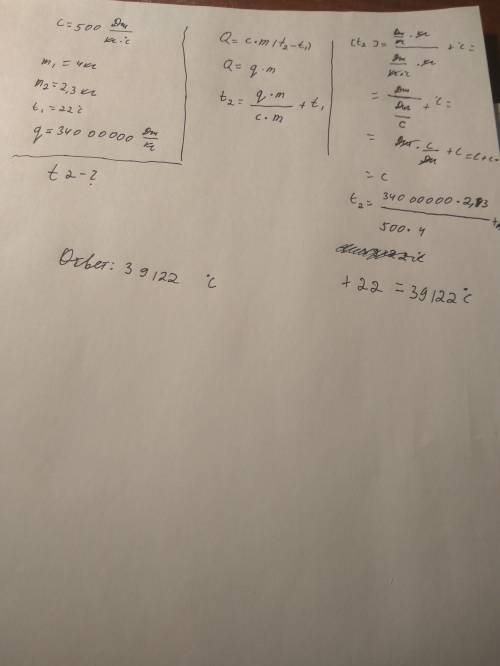 c = 500 Дж/кг·°C
m₁ = 4 кг
m₂ = 2,3 кг
t₁ = 22°C
q = 34000000 Дж/кг
t2 - ?
Q = c·m (t₂ - t₁)
Q = q·m
t₂ = q·m / c·m + t₁
[t₂] = Дж/кг · кг / Дж/кг·°C · кг + °C =
= Дж / Дж/C + °C =
= Дж · C/Дж + C = C + C =
= C
t₂ = 34000000 · 2,3 / 500 · 4
+ 22 = 39122°C
Ответ: 39122 °C